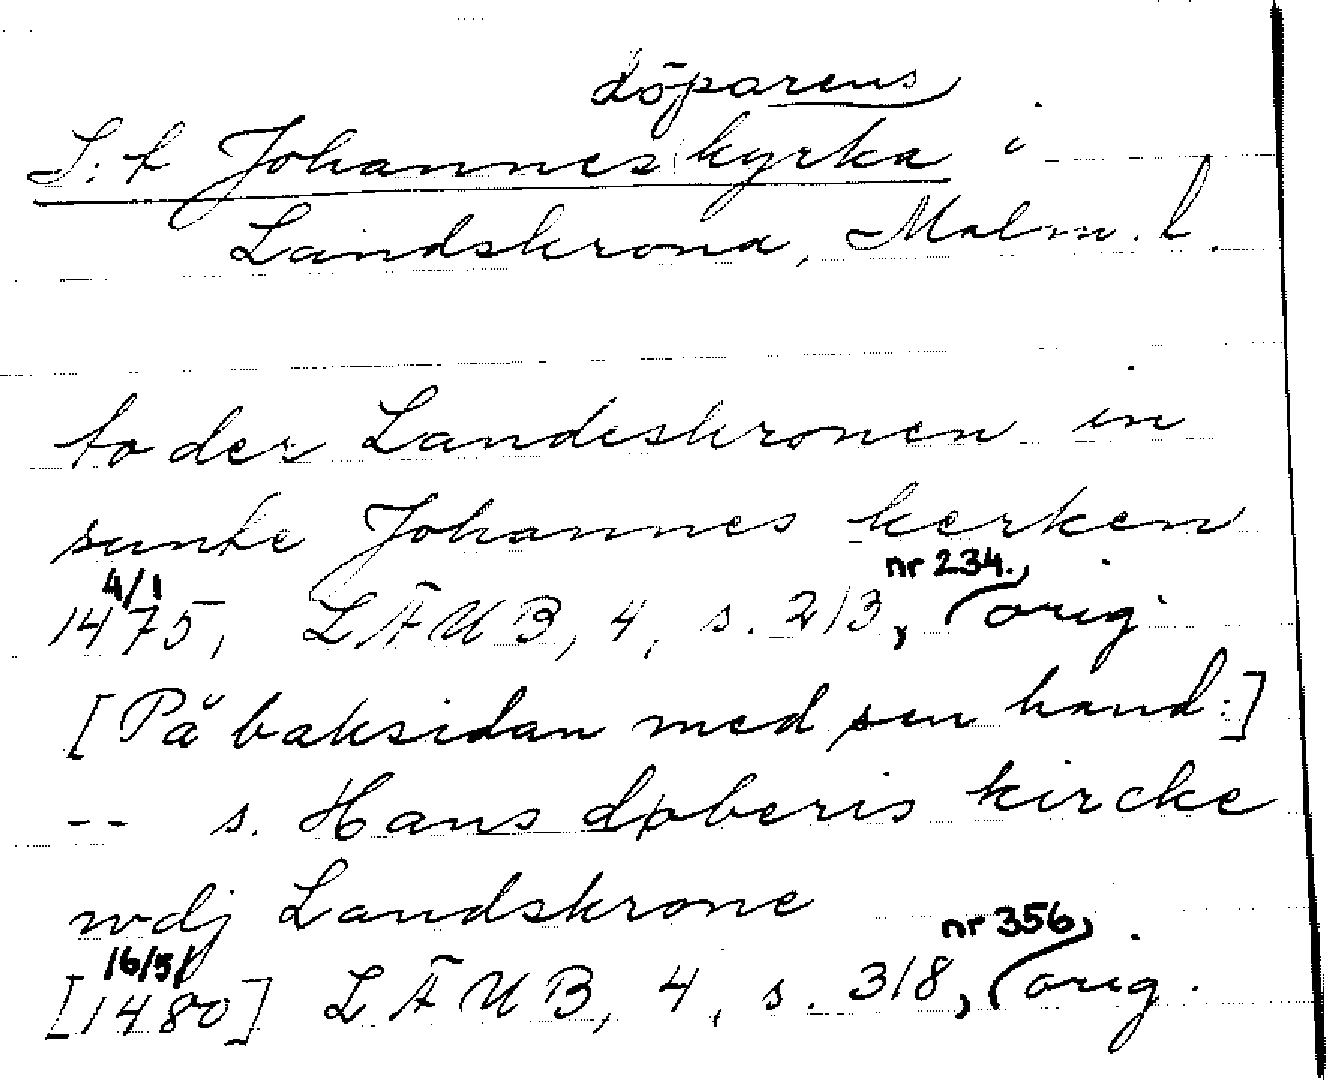 döparens
S:t Johannes kyrka i
Landskrona, Malm. l.
to der Landeskronen in
sunte Johannes kerken
nr 234.,
4/1
1475, LÄUB, 4, s. 213, orig.
[På baksidan med sen hand:]
-- s. Hans døberis kircke
wdj Landskrone
nr 356,
16/5
[1480] LÄUB, 4, s. 318, orig.